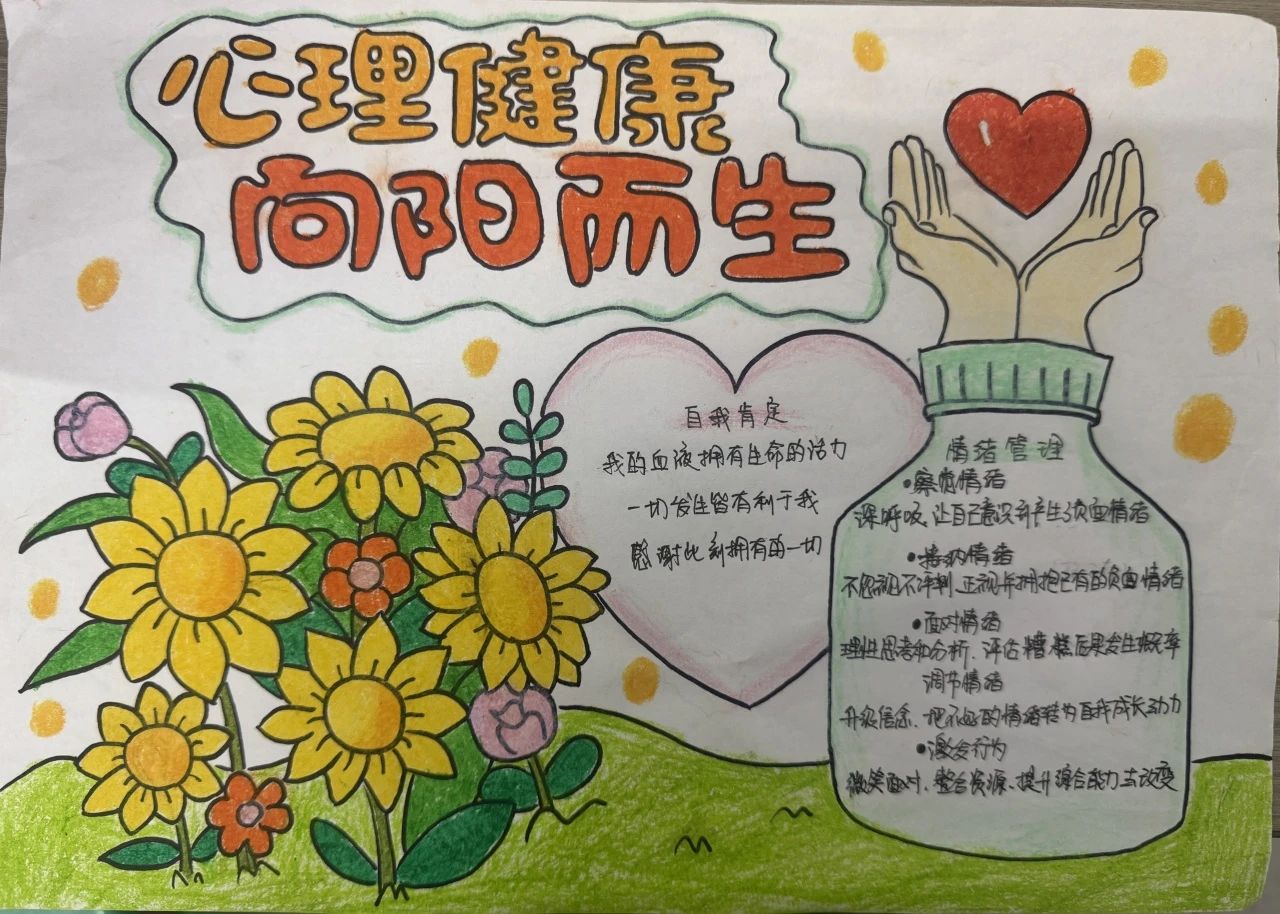 心理健康
向阳而生
自我肯定
我的血液拥有生命的活力
一切发生皆有利于我
感谢此刻拥有的一切
情绪管理
•察觉情绪
深呼吸、让自己意识到产生负面情绪
•接纳情绪
不忽视不评判、正视并拥抱已有的负面情绪
•面对情绪
理性思考和分析、评估糟糕后果发生概率
调节情绪
升级信念、把不好的情绪转为自我成长动力
•激发行为
微笑面对、整合资源、提升综合能力去改变